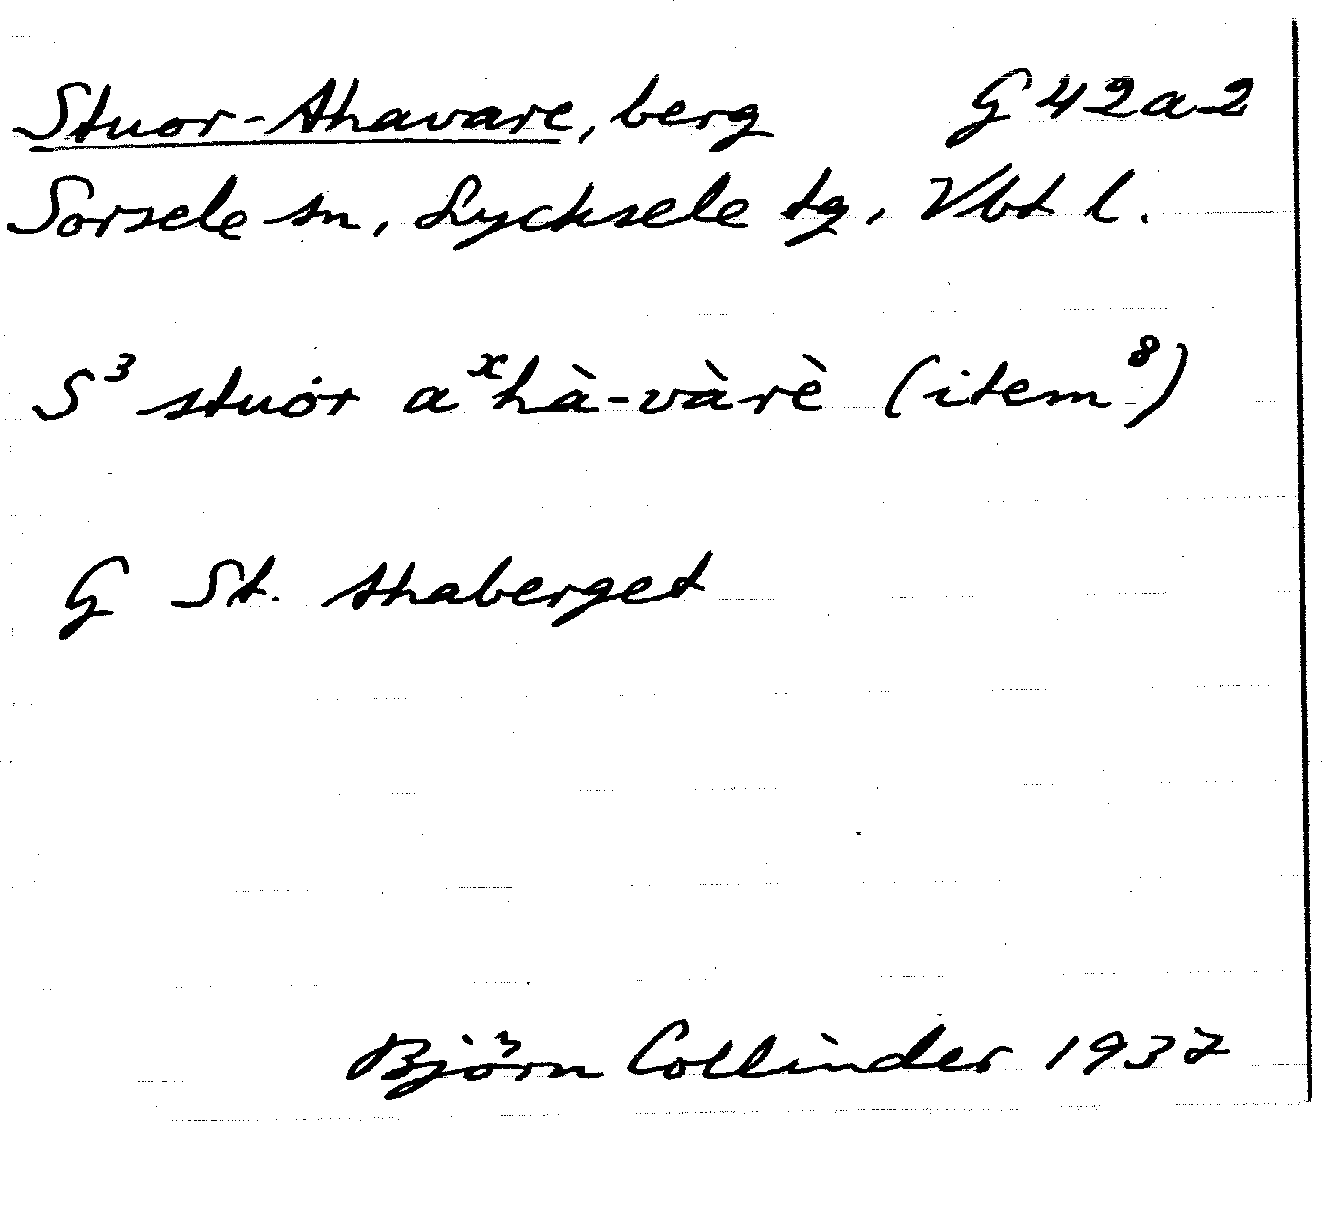 Stuor-Ahavare, berg G42a2
Sorsele sn, Lycksele tg, Vbt l.
S³ stuȯr aˣhà-vàrè (item⁸)
G St. Ahaberget
Björn Collinder 1937